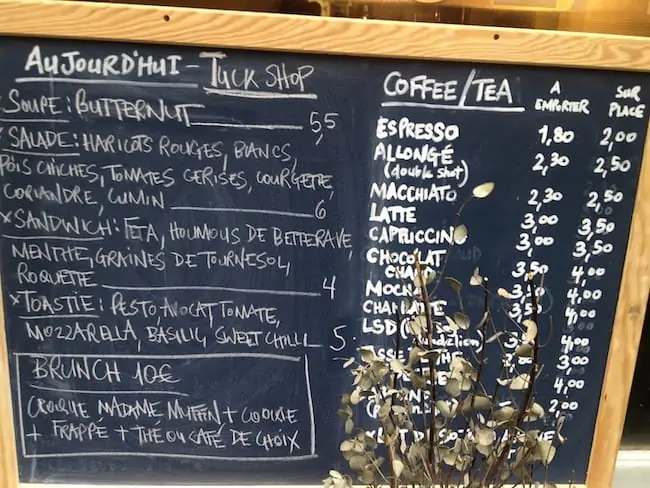 AUJOURD'HUI - TUCK SHOP
SOUPE: BUTTERNUT 5,5
SALADE: HARICOTS ROUGES, BLANCS,
POIS CHICHES, TOMATES CERISES, COURGETTE,
CORIANDRE, CUMIN 6
*SANDWICH: FETA, HOUMOUS DE BETTERAVE,
MENTHE, GRAINES DE TOURNESOL,
ROQUETTE 4
*TOASTIE: PESTO, AVOCAT, TOMATE,
MOZZARELLA, BASILIC, SWEET CHILLI 5
BRUNCH 10€
CROQUE MADAME MUFFIN + COOKIE
+ FRAPPÉ + THÉ OU CAFÉ DE CHOIX
COFFEE/TEA A EMPORTER SUR PLACE
ESPRESSO 1,80 2,00
ALLONGÉ 2,30 2,50
(double shot)
MACCHIATO 2,30 2,50
LATTE 3,00 3,50
CAPPUCCINO 3,00 3,50
CHOCOLAT
CHAUD 3,50 4,00
MOCHA 3,50 4,00
CHAI LATTE 3,50 4,00
LSD 4,00
3,00
4,00
2,00